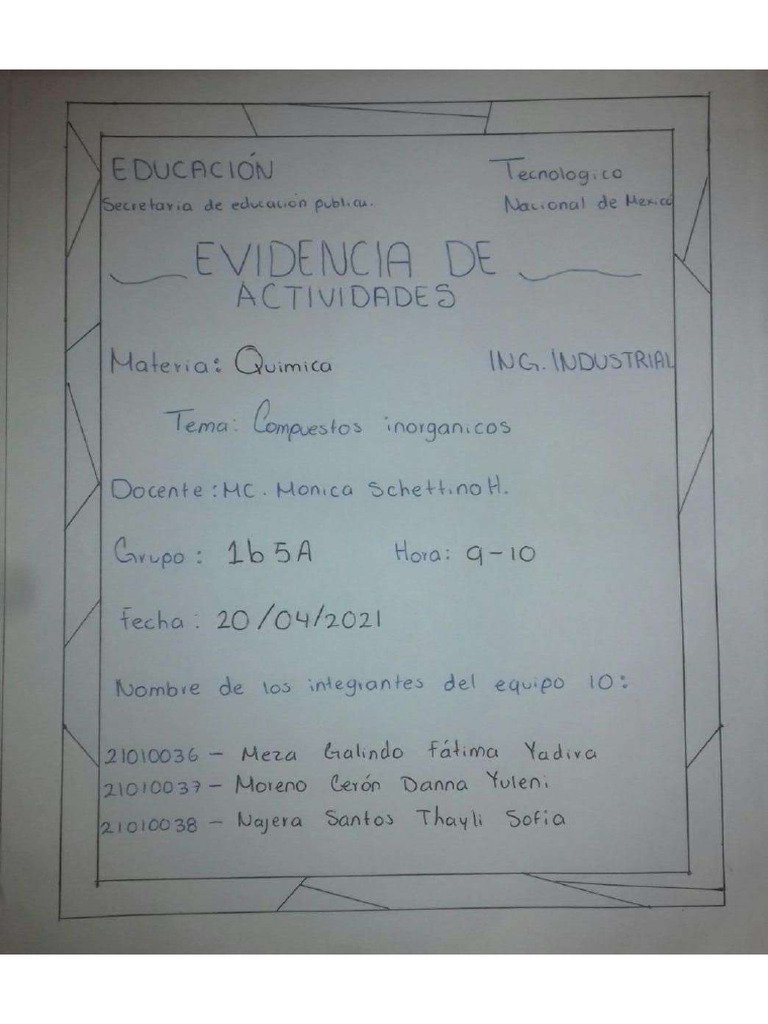 EDUCACIÓN
Tecnologico
Secretaria de educación publica.
Nacional de Mexico
EVIDENCIA DE
ACTIVIDADES
Materia: Quimica
ING. INDUSTRIAL
Tema: Compuestos inorganicos
Docente: MC. Monica Schettino H.
Grupo: 1b5A Hora: 9-10
Fecha: 20/04/2021
Nombre de los integrantes del equipo 10:
21010036 - Meza Galindo Fátima Yadira
21010037 - Moreno Cerón Danna Yuleni
21010038 - Najera Santos Thayli Sofia